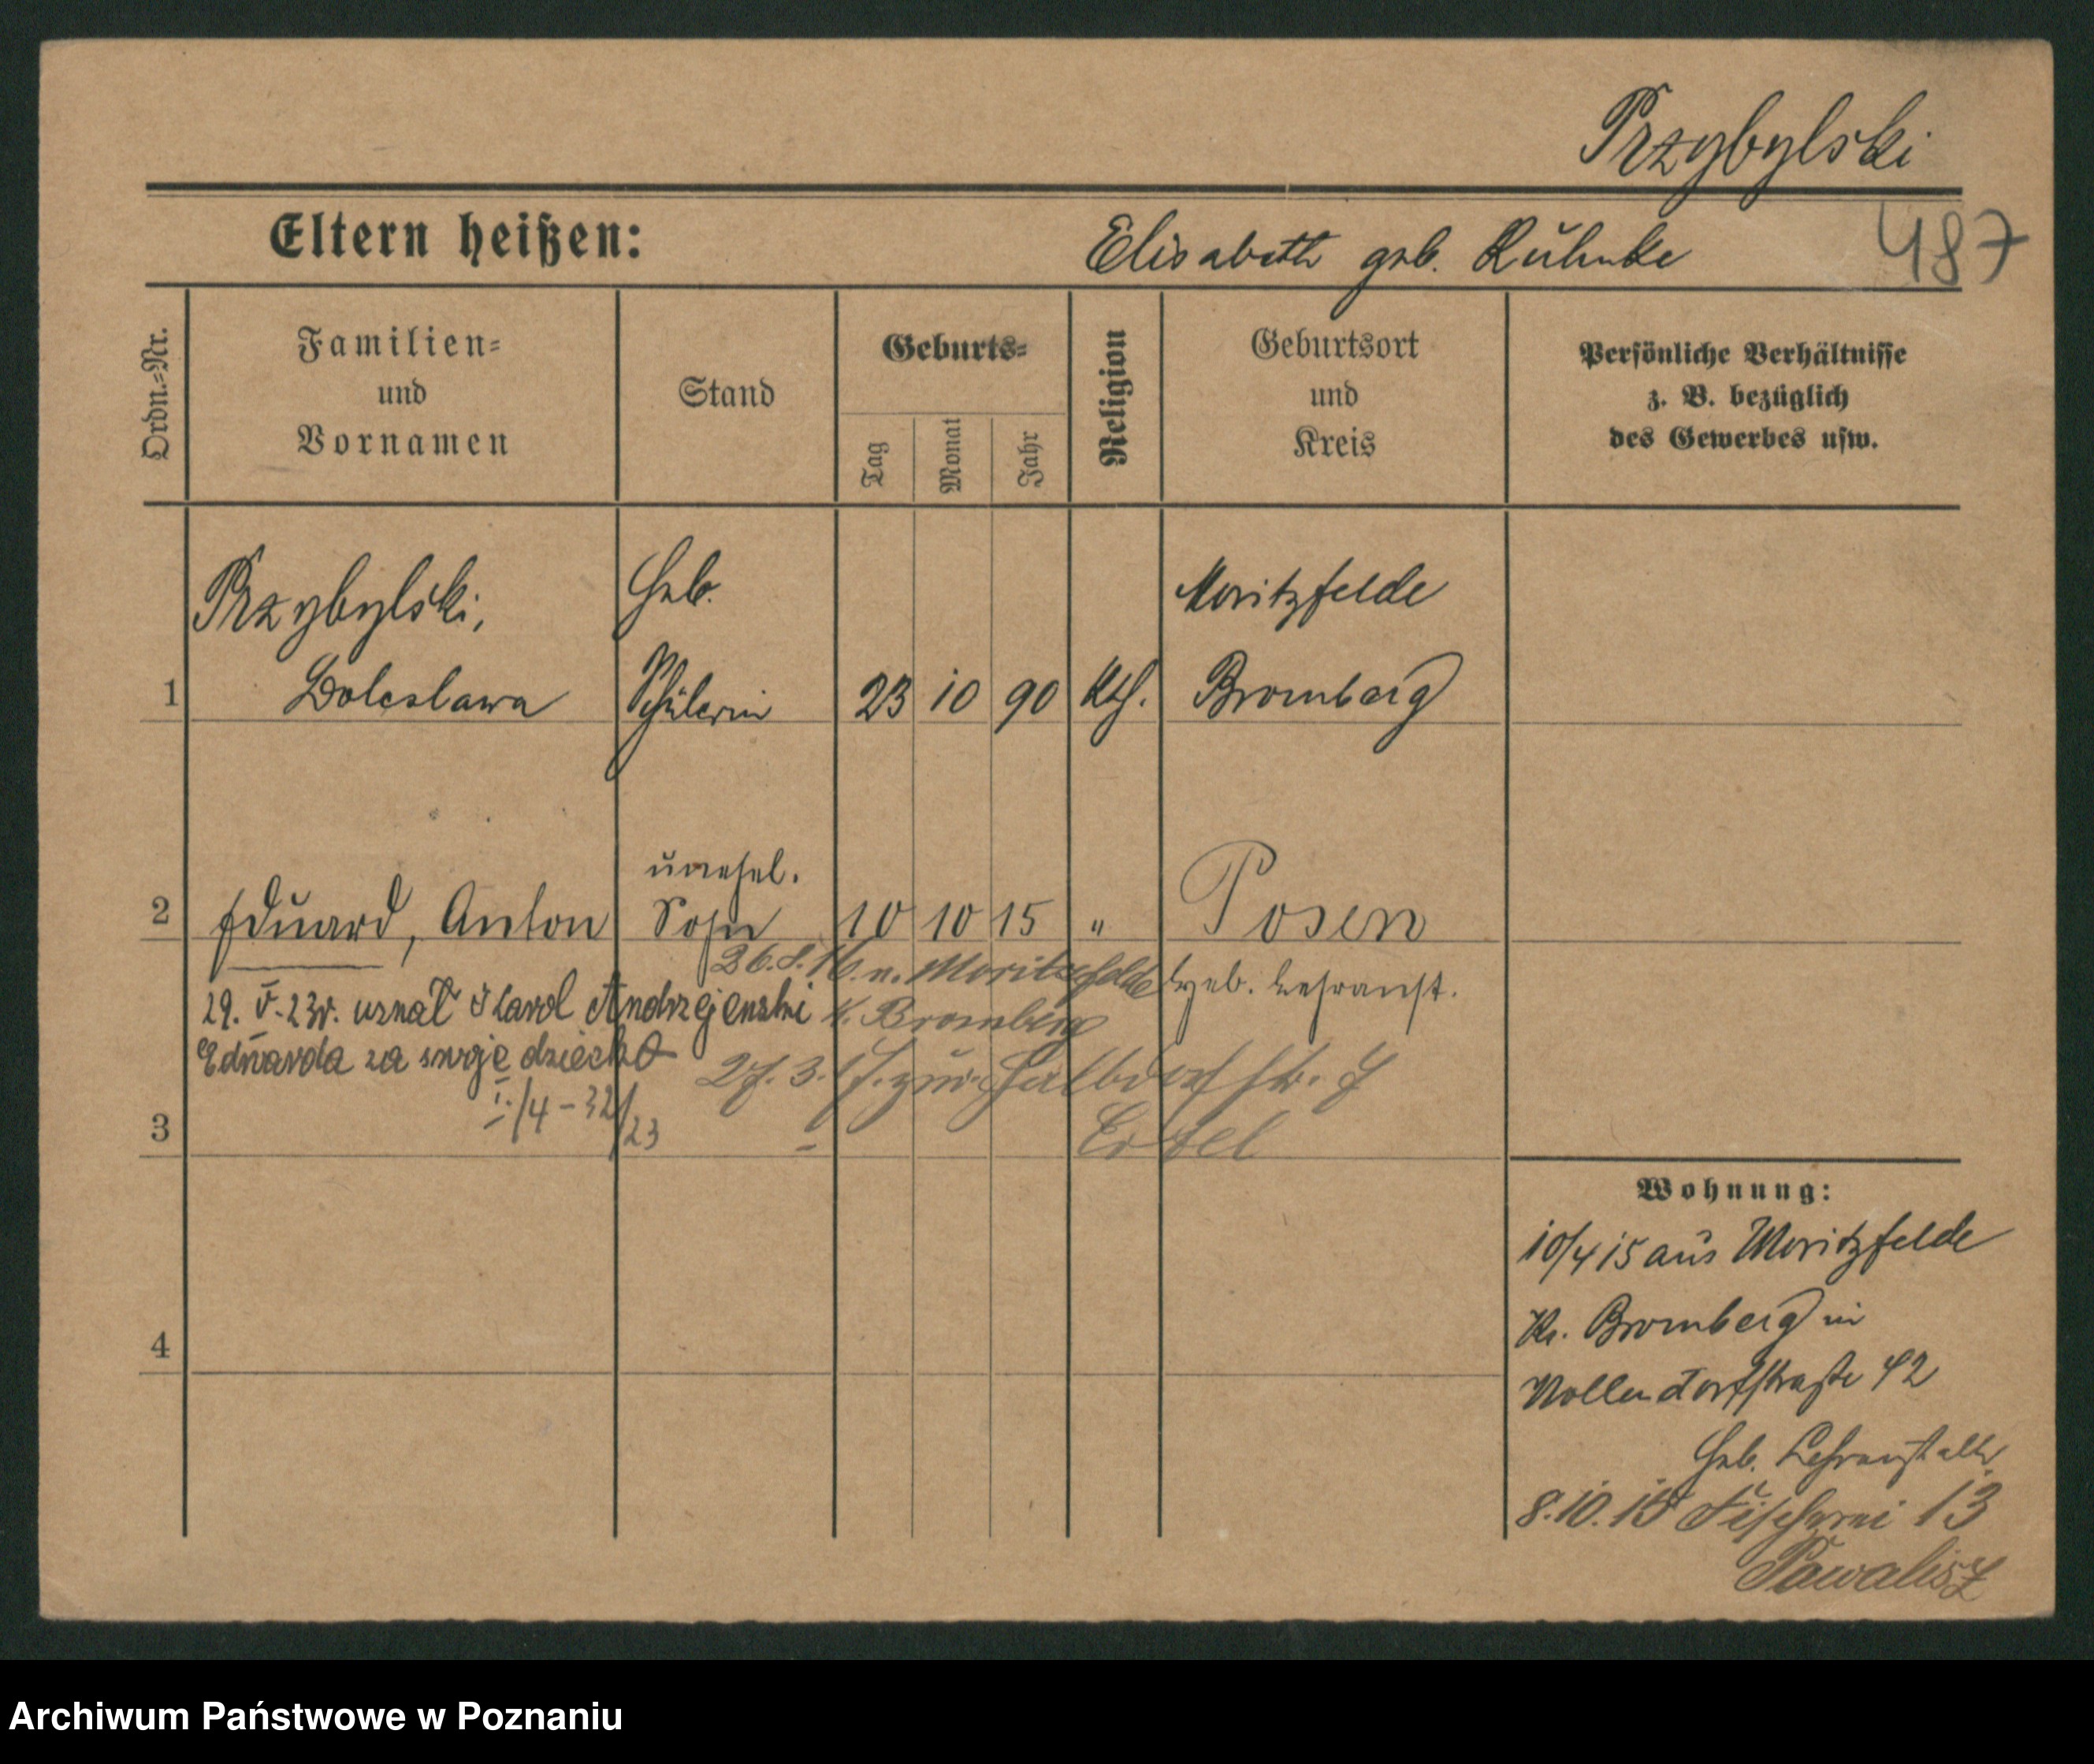 Przybylski
Eltern heißen:
Elisabeth geb. Kühnke
487
Ordn.=Nr.
Familien=
und
Vornamen
Stand
Geburts=
Tag
Monat
Jahr
Religion
Geburtsort
und
Kreis
Persönliche Verhältnisse
z. B. bezüglich
des Gewerbes usw.
Przybylski, Heb. Moritzfelde
1 Boleslawa Schülerin 23 10 90 kth. Bromberg
unehel.
2 Eduard, Anton Sohn 10 10 15 " Posen
26.8.16. n. Moritzfelde
Heb. Lehranst.
K. Bromberg
29. V. 23r. uznał Karol Andrzejewski
Edwarda za swoje dziecko
27. 3. 17. zur. Halbdorfstr. 7
I./4-32/23
3
Wohnung:
10/4 15 aus Moritzfelde
Kr. Bromberg in
4
Nollendorfstraße 42
Heb. Lehranstalt
8.10.15 Fischerei 13
Pawalisz
Archiwum Państwowe w Poznaniu